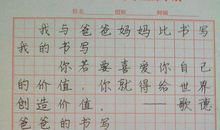 姓名 组别 时间
我与爸爸妈妈比书写
我的书写
你若要喜爱你自己
的价值,你就得给世界
创造价值。——歌德
爸爸的书写